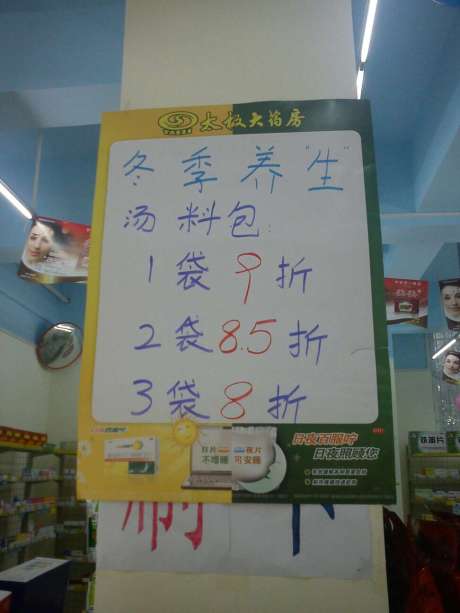 太极大药房
冬季养"生"
汤料包:
1袋9折
2袋8.5折
3袋8折
日片 夜片
不瞌睡 可安睡
日夜百服咛
日夜照顾您
刷卡